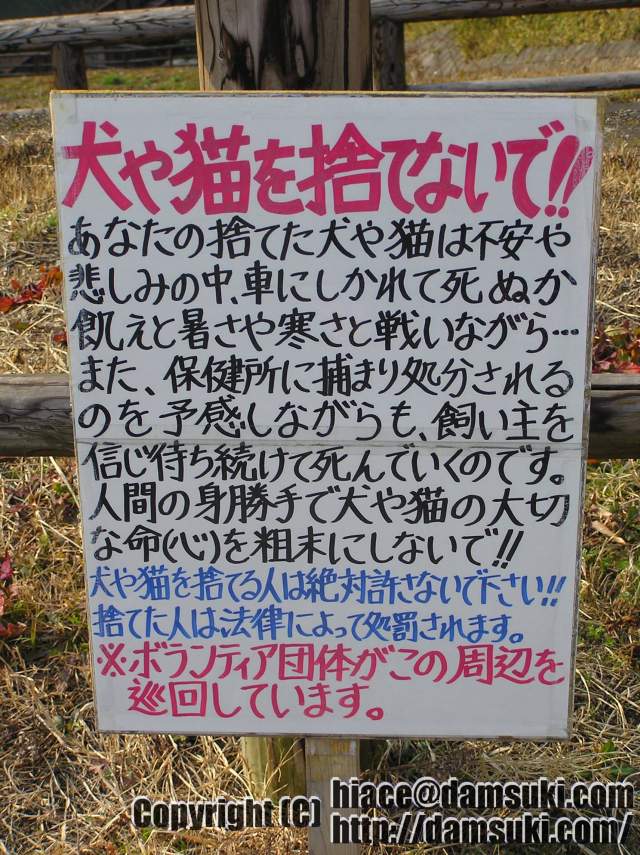 犬や猫を捨てないで!!
あなたの捨てた犬や猫は不安や
悲しみの中、車にしかれて死ぬか
飢えと暑さや寒さと戦いながら…
また、保健所に捕まり処分される
のを予感しながらも、飼い主を
信じ待ち続けて死んでいくのです。
人間の身勝手で犬や猫の大切
な命(心)を粗末にしないで!!
犬や猫を捨てる人は絶対許さないで下さい!!
捨てた人は、法律によって処罰されます。
※ボランティア団体がこの周辺を
巡回しています。
Copyright (C) hiace@damsuki.com
http://damsuki.com/